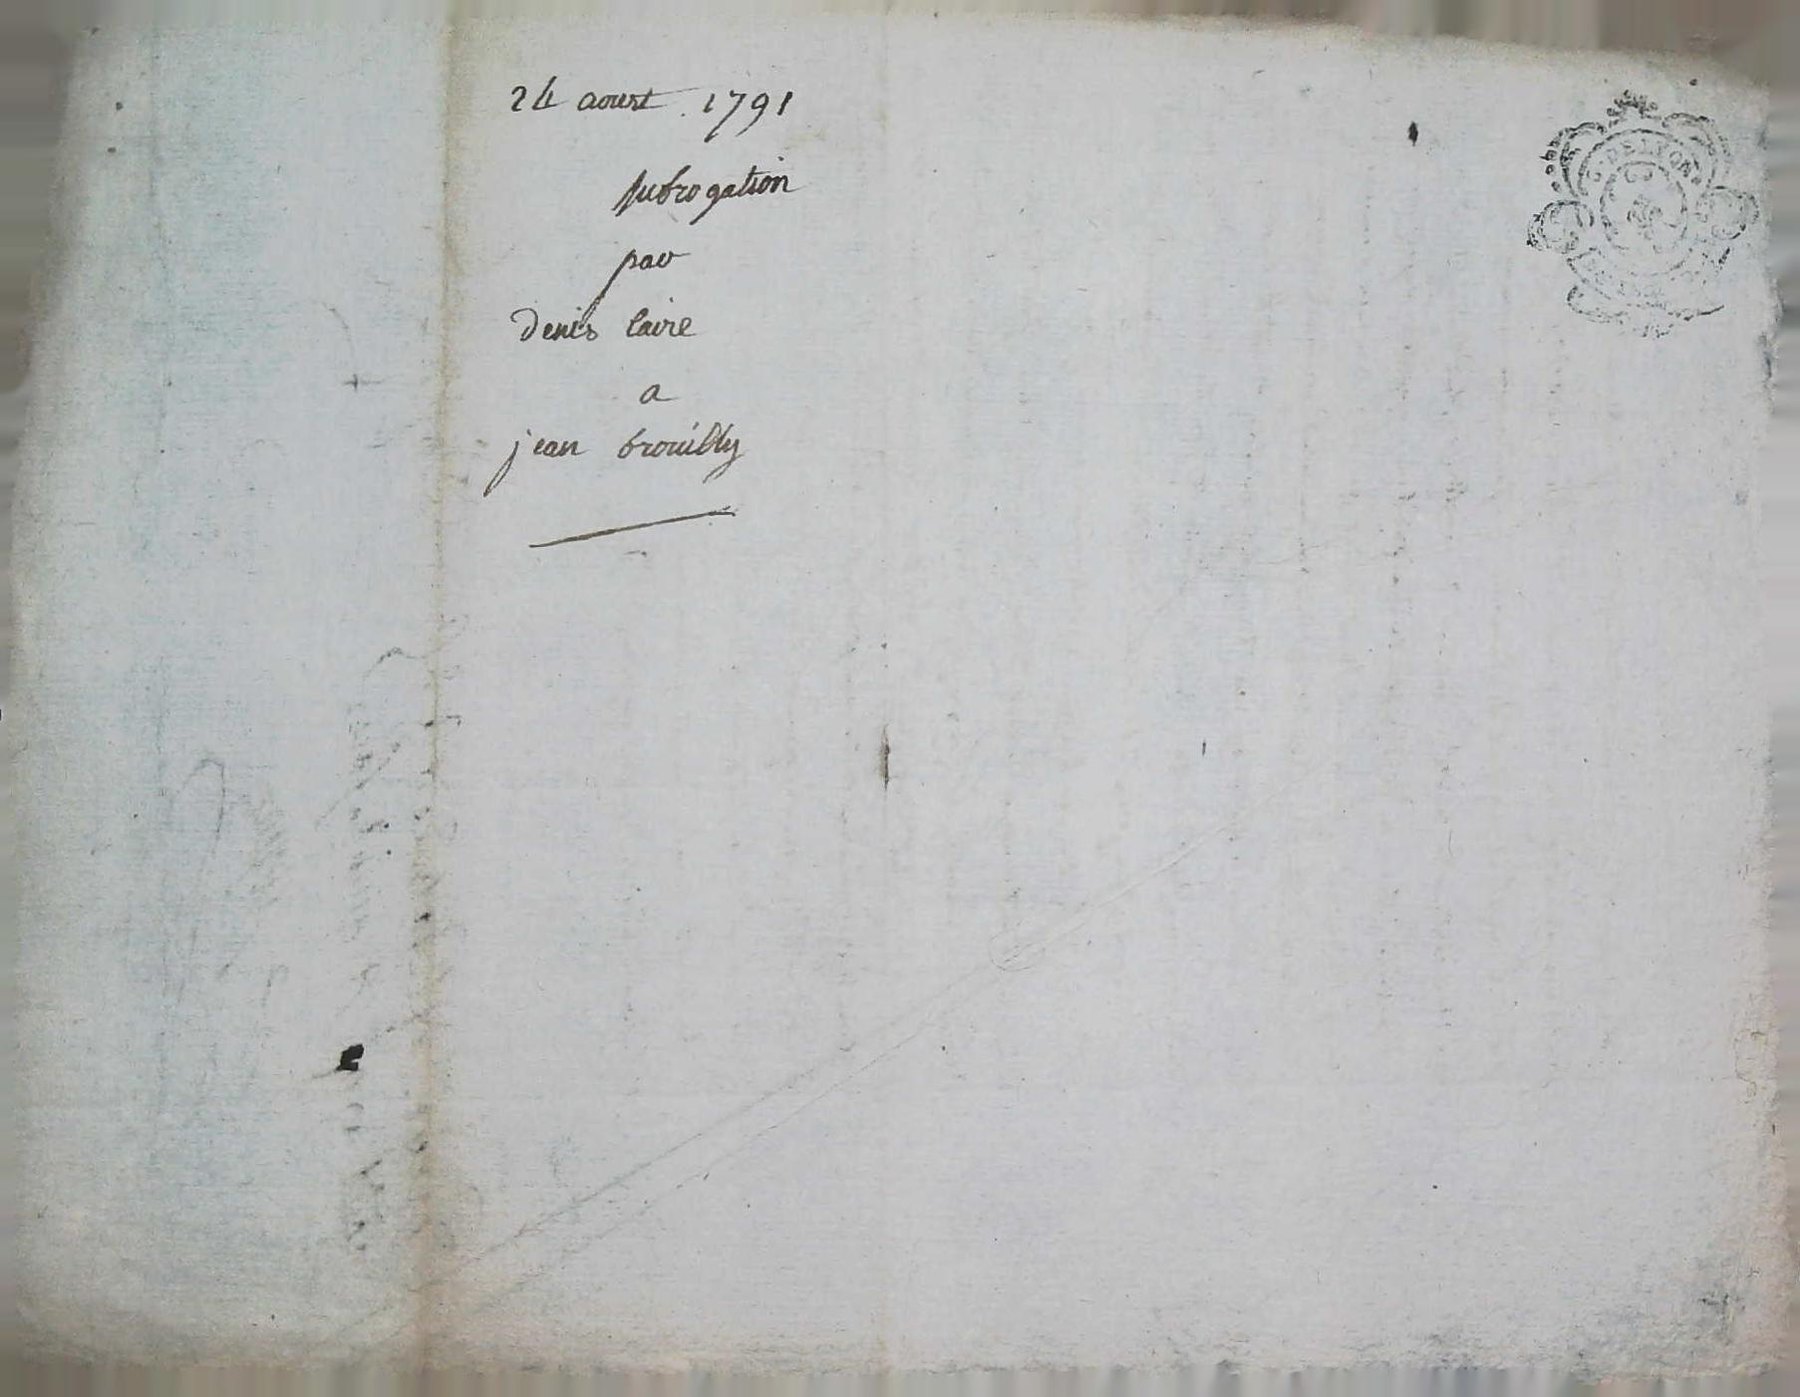 24 aoust 1791
subrogation
par
denis laire
a
jean brouilly
DE LYON